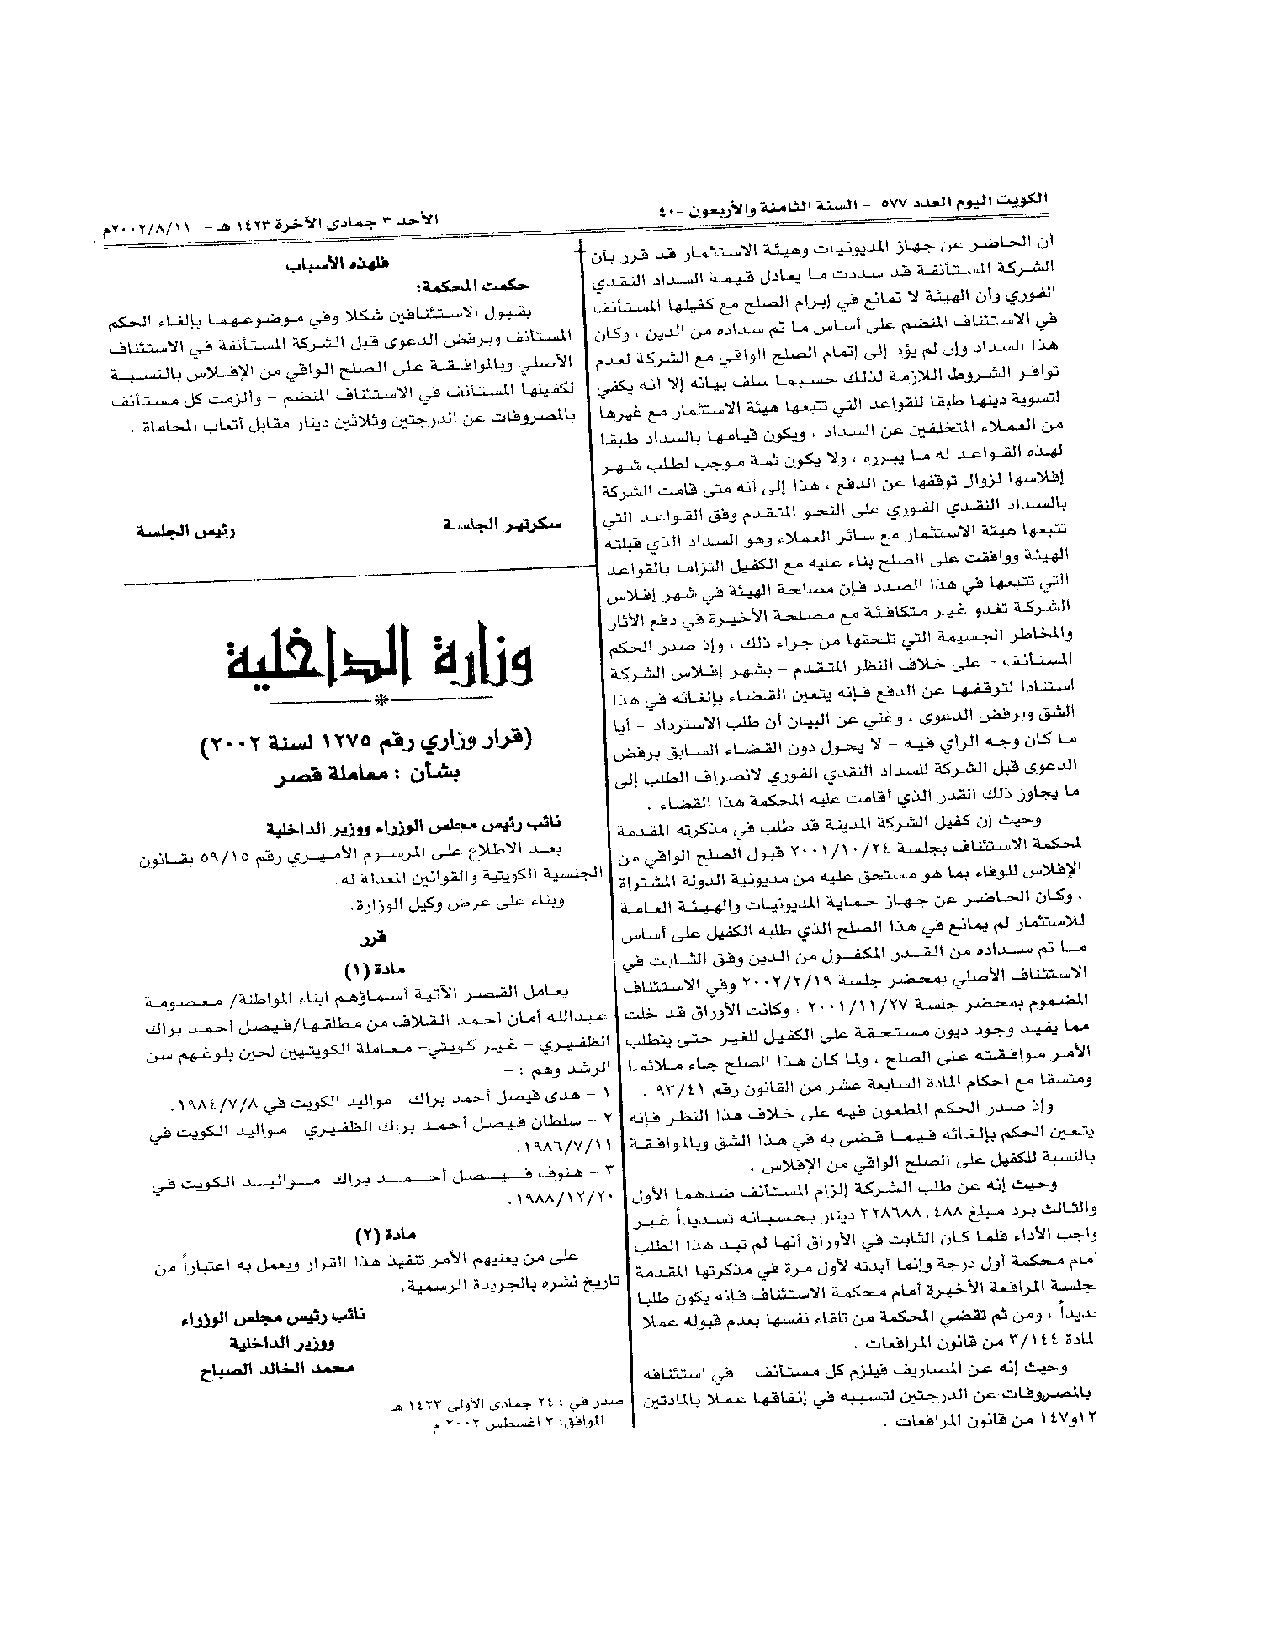 الكويت اليوم العدد ٥٧٧ - السنة الثامنة والأربعون -٤٠
الأحد ٣ جمادى الآخرة ١٤٢٣ هـ - ٢٠٠٢/٨/١١م
أن الحاضر عن جهاز المديونيات وهيئة الاستثمار قد قرر بأن
الشركة المستأنفة قد سددت ما يعادل قيمة السداد النقدي
الفوري وأن الهيئة لا تمانع في إبرام الصلح مع كفيلها المستأنف
في الاستئناف المنضم على أساس ما تم سداده من الدين ، وكان
هذا السداد وإن لم يؤد إلى إتمام الصلح الواقي مع الشركة لعدم
توافر الشروط اللازمة لذلك حسبما سلف بيانه إلا انه يكفي
لتسوية دينها طبقا للقواعد التي تتبعها هيئة الاستثمار مع غيرها
من العملاء المتخلفين عن السداد ، ويكون قيامها بالسداد طبقا
لهذه القواعد له ما يبرره ، ولا يكون ثمة موجب لطلب شهر
إفلاسها لزوال توقفها عن الدفع ، هذا إلى أنه متى قامت الشركة
بالسداد النقدي الفوري على النحو المتقدم وفق القواعد التي
تتبعها هيئة الاستثمار مع سائر العملاء وهو السداد الذي قبلته
الهيئة ووافقت على الصلح بناء عليه مع الكفيل التزاما بالقواعد
التي تتبعها في هذا الصدد فإن مصلحة الهيئة في شهر إفلاس
الشركة تغدو غير متكافئة مع مصلحة الأخيرة في دفع الآثار
والمخاطر الجسيمة التي تلحقها من جراء ذلك ، وإذ صدر الحكم
المستأنف - على خلاف النظر المتقدم - بشهر إفلاس الشركة
استنادا لتوقفها عن الدفع فإنه يتعين القضاء بإلغائه في هذا
الشق وبرفض الدعوى ، وغني عن البيان أن طلب الاسترداد - أيا
ما كان وجه الرأي فيه - لا يحول دون القضاء السابق برفض
الدعوى قبل الشركة للسداد النقدي الفوري لانصراف الطلب إلى
ما يجاوز ذلك القدر الذي أقامت عليه المحكمة هذا القضاء .
وحيث إن كفيل الشركة المدينة قد طلب في مذكرته المقدمة
لمحكمة الاستئناف بجلسة ٢٠٠١/١٠/٢٤ قبول الصلح الواقي من
الإفلاس للوفاء بما هو مستحق عليه من مديونية الدولة المشتراة
، وكان الحاضر عن جهاز حماية المديونيات والهيئة العامة
للاستثمار لم يمانع في هذا الصلح الذي طلبه الكفيل على أساس
ما تم سداده من القدر المكفول من الدين وفق الثابت في
الاستئناف الأصلي بمحضر جلسة ٢٠٠٢/٢/١٩ وفي الاستئناف
المضموم بمحضر جلسة ٢٠٠١/١١/٢٧ ، وكانت الأوراق قد خلت
مما يفيد وجود ديون مستحقة على الكفيل للغير حتى يتطلب
الأمر موافقته على الصلح ، ولما كان هذا الصلح جاء ملائما
ومتسقا مع أحكام المادة السابعة عشر من القانون رقم ٩٣/٤١ .
وإذ صدر الحكم المطعون فيه على خلاف هذا النظر فإنه
يتعين الحكم بإلغائه فيما قضى به في هذا الشق وبالموافقة
بالنسبة للكفيل على الصلح الواقي من الإفلاس .
وحيث إنه عن طلب الشركة إلزام المستأنف ضدهما الأول
والثالث برد مبلغ ٢٢٨٦٨٨,٤٨٨ دينار بحسبانه تسديداً غير
واجب الأداء فلما كان الثابت في الأوراق أنها لم تبد هذا الطلب
أمام محكمة أول درجة وإنما أبدته لأول مرة في مذكرتها المقدمة
جلسة المرافعة الأخيرة أمام محكمة الاستئناف فإنه يكون طلبا
جديداً ، ومن ثم تقضي المحكمة من تلقاء نفسها بعدم قبوله عملا
لمادة ٣/١٤٤ من قانون المرافعات .
وحيث إنه عن المصاريف فيلزم كل مستأنف في استئنافه
بالمصروفات عن الدرجتين لتسببه في إنفاقها عملا بالمادتين
١٢و١٤٧ من قانون المرافعات .
فلهذه الأسباب
حكمت المحكمة:
بقبول الاستئنافين شكلا وفي موضوعهما بإلغاء الحكم
المستأنف وبرفض الدعوى قبل الشركة المستأنفة في الاستئناف
الأصلي وبالموافقة على الصلح الواقي من الإفلاس بالنسبة
لكفيلها المستأنف في الاستئناف المنضم - وألزمت كل مستأنف
بالمصروفات عن الدرجتين وثلاثين دينار مقابل أتعاب المحاماة .
سكرتير الجلسة
رئيس الجلسة
وزارة الداخلية
(قرار وزاري رقم ١٢٧٥ لسنة ٢٠٠٢)
بشأن : معاملة قصر
نائب رئيس مجلس الوزراء ووزير الداخلية
بعد الاطلاع على المرسوم الأميري رقم ٥٩/١٥ بقانون
الجنسية الكويتية والقوانين المعدلة له.
وبناء على عرض وكيل الوزارة.
قرر
مادة (١)
يعامل القصر الآتية أسماؤهم ابناء المواطنة/ معصومة
عبدالله أمان أحمد القلاف من مطلقها/فيصل أحمد براك
الظفيري - غير كويتي- معاملة الكويتيين لحين بلوغهم سن
الرشد وهم : -
١ - هدى فيصل أحمد براك مواليد الكويت في ١٩٨٤/٧/٨.
٢ - سلطان فيصل أحمد براك الظفيري مواليد الكويت في
١٩٨٦/٧/١١.
٣ - هنوف فيصل أحمد براك مواليد الكويت في
١٩٨٨/١٢/٢٠.
مادة (٢)
على من يعنيهم الأمر تنفيذ هذا القرار ويعمل به اعتباراً من
تاريخ نشره بالجريدة الرسمية.
نائب رئيس مجلس الوزراء
ووزير الداخلية
محمد الخالد الصباح
صدر في : ٢٤ جمادى الأولى ١٤٢٣ هـ
الموافق: ٣ اغسطس ٢٠٠٢ م